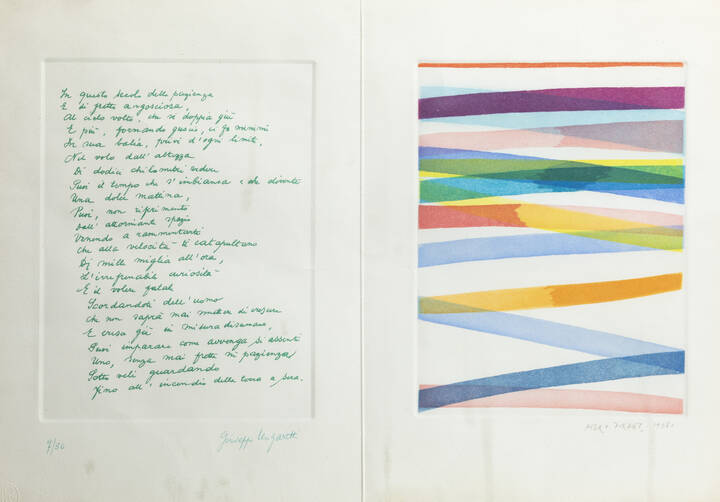 In questo secolo della pazienza
E di fretta angosciosa,
Al cielo volto, che si doppia giù
E più, formando guscio, ci fa minimi
In sua balìa, privi d'ogni limite,
Nel volo dall'altezza
Di dodici chilometri vedere
Puoi il tempo che s'imbianca e che diventa
Una dolce mattina,
Puoi, non riferimento
Dall'attorniante spazio
Venendo a rammentarti
Che alla velocità ti catapultano
Di mille miglia all'ora,
L'irrefrenabile curiosità
E il volere fatale
Scordandoti dell'uomo
Che non saprà mai smettere di crescere
E cresce già in misura disumana,
Puoi imparare come avvenga si assenti
Uno, senza mai fretta nè pazienza
Sotto veli guardando
Fino all'incendio della terra a sera.
Giuseppe Ungaretti